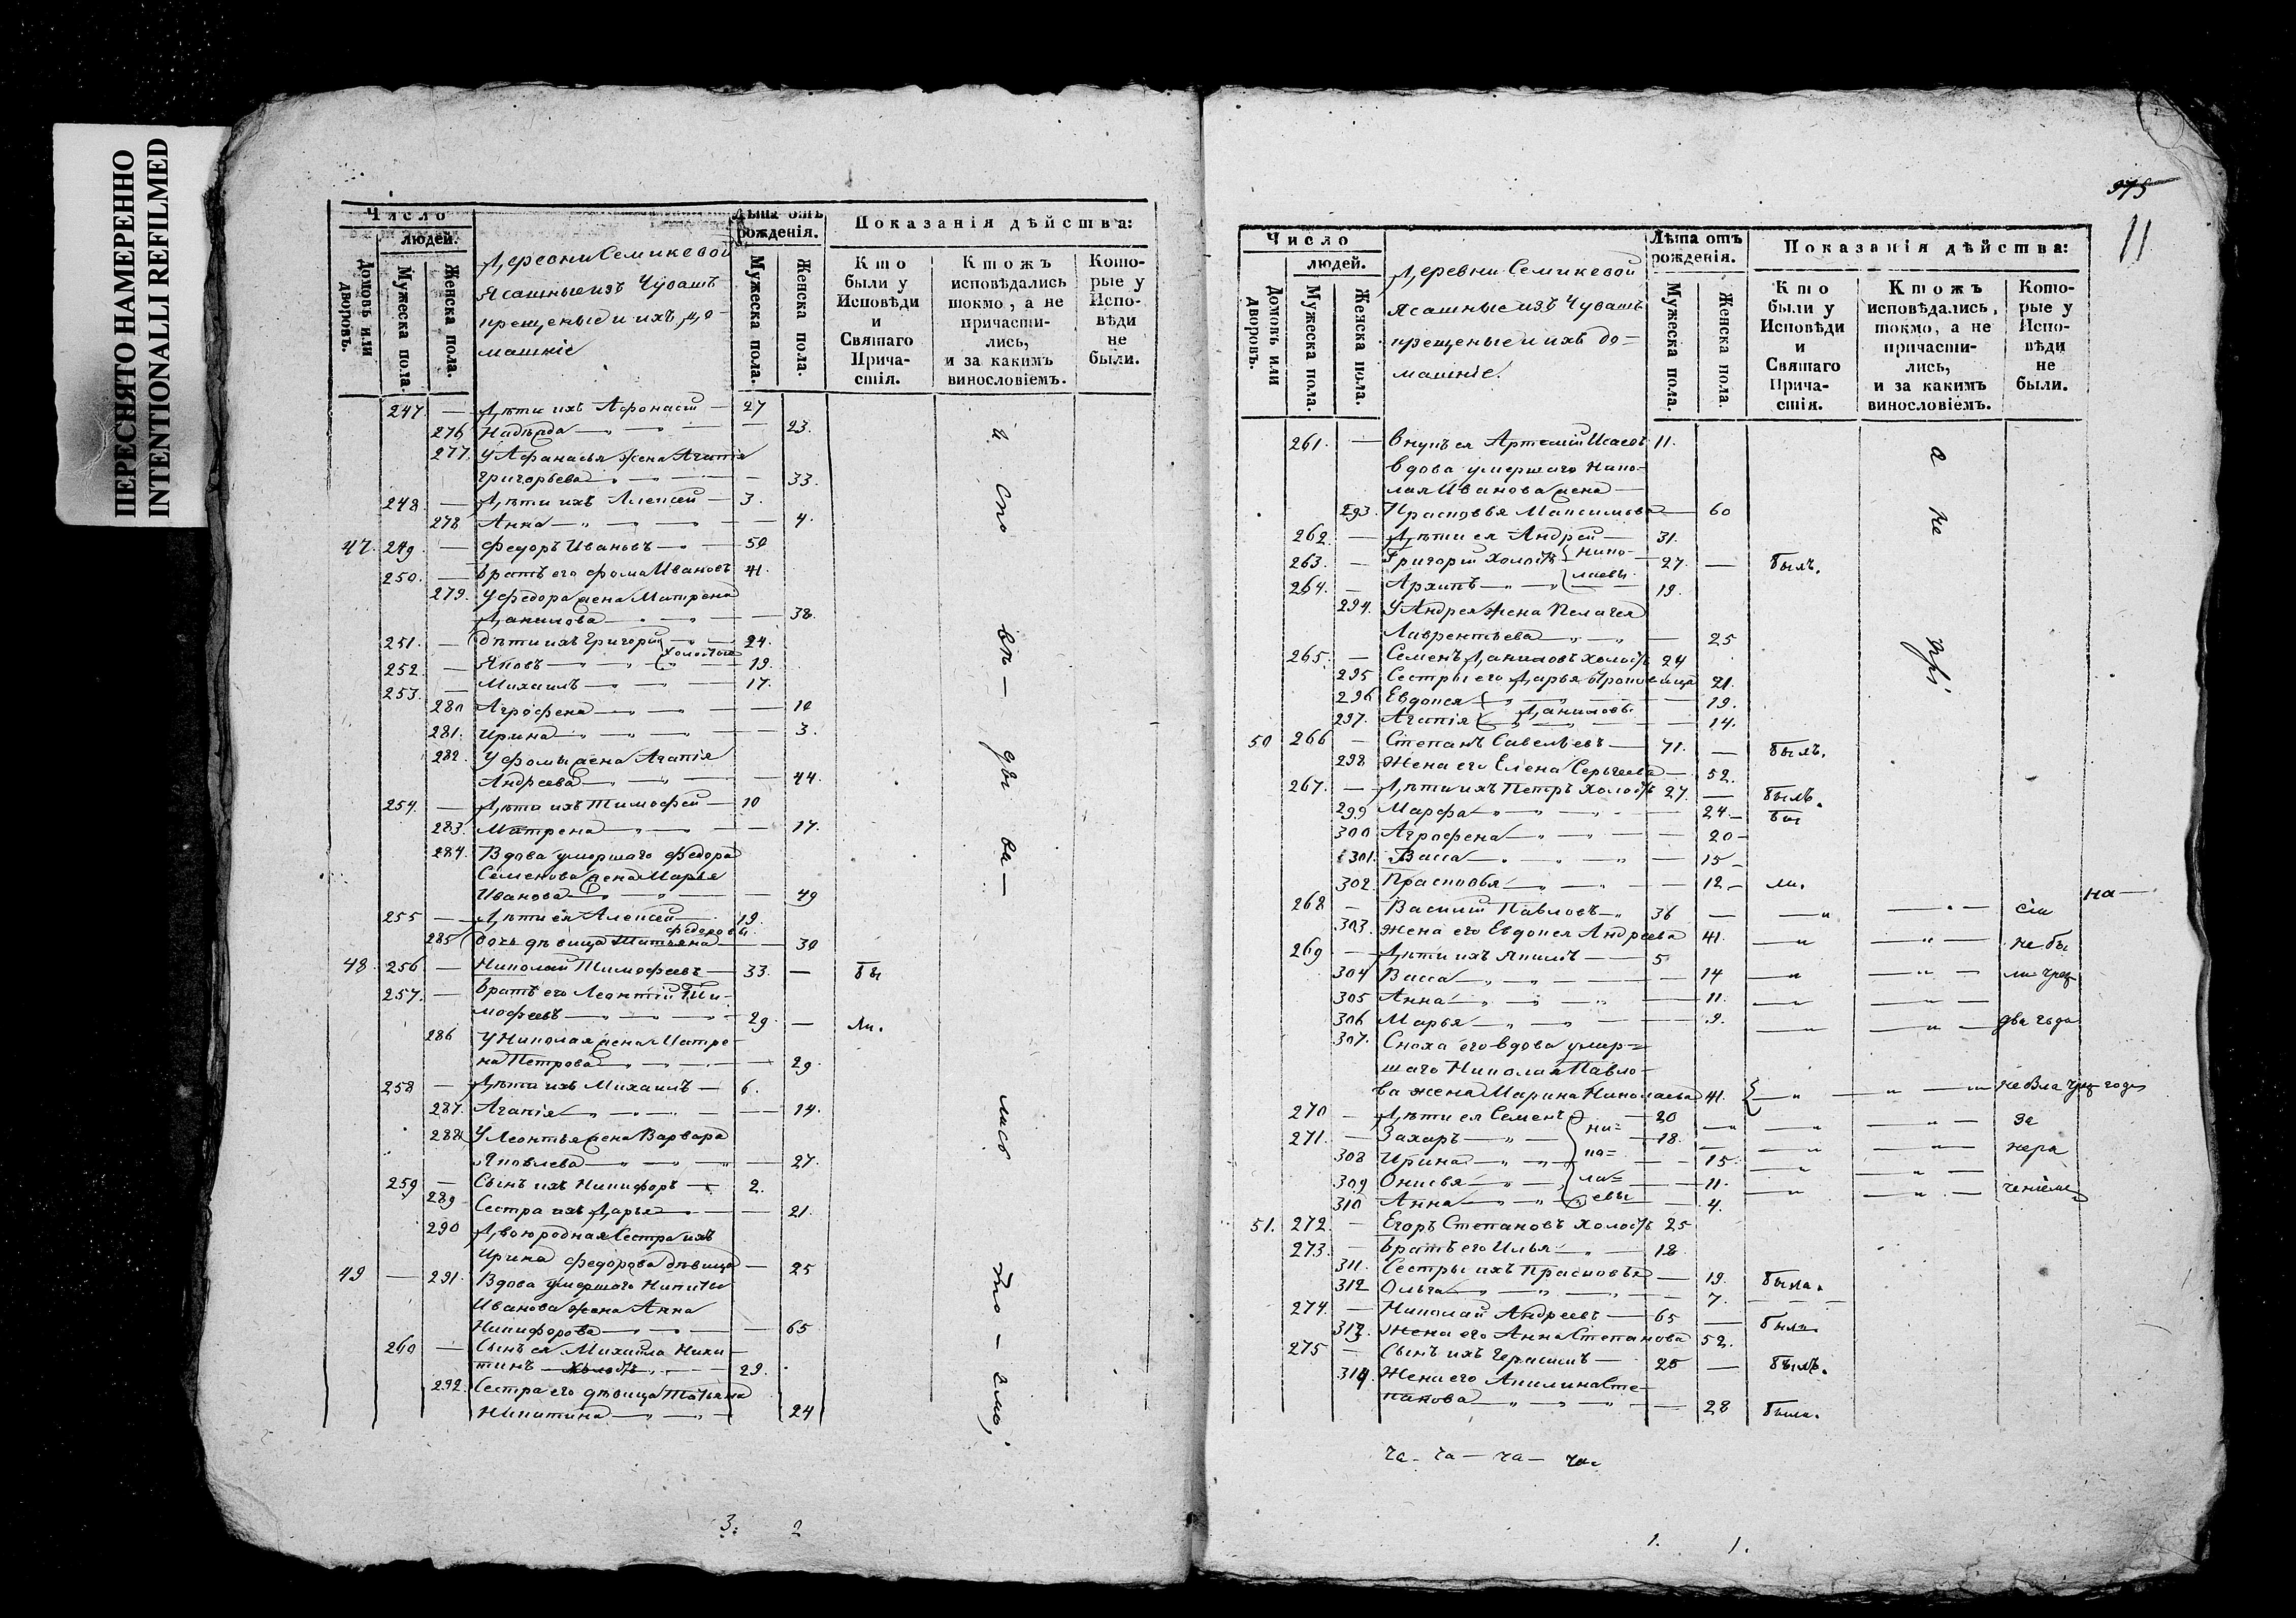 ПЕРЕСНЯТО НАМЕРЕННО
INTENTIONALLI REFILMED
Число
людей.
Домовъ или дворовъ.
Мужеска пола.
Женска пола.
Деревни Семикевой
Ясашные изъ Чувашъ
крещеные и ихъ до-
машніе
Лѣта отъ рожденія.
Мужеска пола.
Женска пола.
Показанія дѣйства:
Кто были у Исповѣди и Святаго Прича-стія.
Ктожъ исповѣдались токмо, а не причасти-лись, и за какимъ винословіемъ.
Кото-рые у Испо-вѣди не были.
247. — Дѣти ихъ Афонасій — 27
276 Надѣжда — 23.
277. У Афанасья жена Агапія
Григорьева — 33.
248. — Дѣти ихъ Алексей — 3.
278 Анна — 4.
47. 249. — Федоръ Ивановъ — 50
250. — Братъ его Фома Ивановъ 41.
279. У Федора жена Матрена
Данилова — 38.
251. — Дѣти ихъ Григорій — 24.
холостые
252. — Яковъ — 19.
253. — Михаилъ — 17.
280 Агрофена — 10
281. Ирина — 3.
282. У Фомы жена Агапія
Андреева — 44.
254. — Дѣти ихъ Тимофей — 10
283. Матрена — 17.
284. Вдова умершаго Федора
Семенова жена Марья
Иванова — 49
255 — Дѣти ея Алексей — 19.
Федоровы
285 дочь дѣвица Татьяна — 30
48. 256 — Николай Тимофеевъ — 33. — бы
257. — Братъ его Леонтій Ти-
мофеевъ — 29. — ли.
286 У Николая жена Матре-
на Петрова — 29.
258 — Дѣти ихъ Михаилъ — 6.
287. Агапія — 14.
288 У Леонтья жена Варвара
Яковлева — 27.
259 — Сынъ ихъ Никифоръ — 2.
289 Сестра ихъ Дарья — 21.
290 Двоюродная сестра ихъ
Ирина Федорова дѣвица — 25
49 — 291. Вдова умершаго Никиты
Иванова жена Анна
Никифорова — 65
260 — Сынъ ея Михайла Ники-
тинъ — холостъ — 29.
292. Сестра его дѣвица Татьяна
Никитина — 24
и спо вѣ — ды ва — лись то — кмо,
3: 2
975
11
Число
людей.
Домовъ или дворовъ.
Мужеска пола.
Женска пола.
Деревни Семикевой
Ясашные изъ Чувашъ
крещеные и ихъ до=
машніе.
Лѣта отъ рожденія.
Мужеска пола.
Женска пола.
Показанія дѣйства:
Кто были у Исповѣди и Святаго Прича-стія.
Ктожъ исповѣдались, токмо, а не причасти-лись, и за какимъ винословіемъ.
Кото-рые у Испо-вѣди не были.
261. — Внукъ ея Артемій Исаевъ 11.
Вдова умершаго Нико-
лая Иванова жена —
293. Прасковья Максимова — 60
262. — Дѣти ея Андрей — 31.
263. — Григорій холостъ { Нико- 27. — былъ.
264. — Архипъ — { лаевы 19.
294. У Андрея жена Пелагея
Лаврентьева — 25
265. — Семенъ Даниловъ холостъ 24
295 Сестры его Дарья 21.
296 Евдокея { — 19.
297. Агапія { Данилов. — 14.
50 266 — Степанъ Савельевъ — 71. — былъ.
298 Жена его Елена Сергеева — 52.
267. — Дѣти ихъ Петръ холостъ 27. — былъ.
299 Марфа — 24. — бы
300 Агрофена — 20 —
301. Васса — 15 —
302. Прасковья — 12 — ли.
268 — Василій Павловъ — 36 — сіи на —
303. Жена его Евдокея Андреева 41. — не бы
269 — Дѣти ихъ — 5
304 Васса — 14 — ли чрез
305 Анна — 11.
306 Марья — 9. — два года
307. Сноха его вдова умер=
шаго Николая Павло-
ва жена Марина Николаева 41. — не была чрез годъ
270 — Дѣти ея Семенъ — 20 — за
271. — Захаръ — { ни= — 18. — нера
308 Ирина — { ко= — 15.
309 Онисья — { ла= — 11. — ченіемъ
310 Анна — { евы — 4.
51. 272. — Егоръ Степановъ холостъ 25
273. — Братъ его Илья — 18.
311. Сестры ихъ Прасковья — 19. была.
312 Ольга — 7.
274. — Николай Андреевъ — 65 — былъ
313. Жена его Анна Степанова 52.
275 — Сынъ ихъ Герасимъ — 25 — былъ.
314. Жена его Акилина Сте-
панова — 28 была.
а не при
ча- ча — ча — ча.
1. 1.